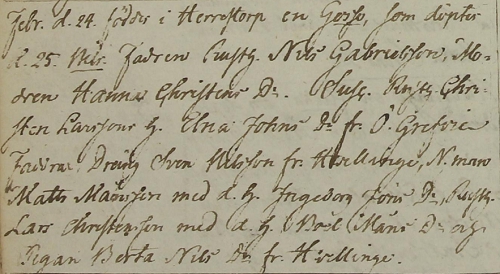 Febr. d. 24. föddes i Herrestorp en Gosse, som döptes
d. 25. Nils. Fadren Rustg. Nils Gabrielsson, Mo-
dren Hanna Christens Dr. Susc. Rustg. Chri-
sten Larssons h. Elna Johns Dr fr. Ö. Grefvie
Faddrar, Dreng Sven Nilsson fr. Hvellinge, N.man
Matts Månsson med d. h. Ingeborg Jöns Dr, Rustg.
Lars Christensson med d. h. Boel Måns Dr og
Pigan Berta Nils Dr fr. Hvellinge.